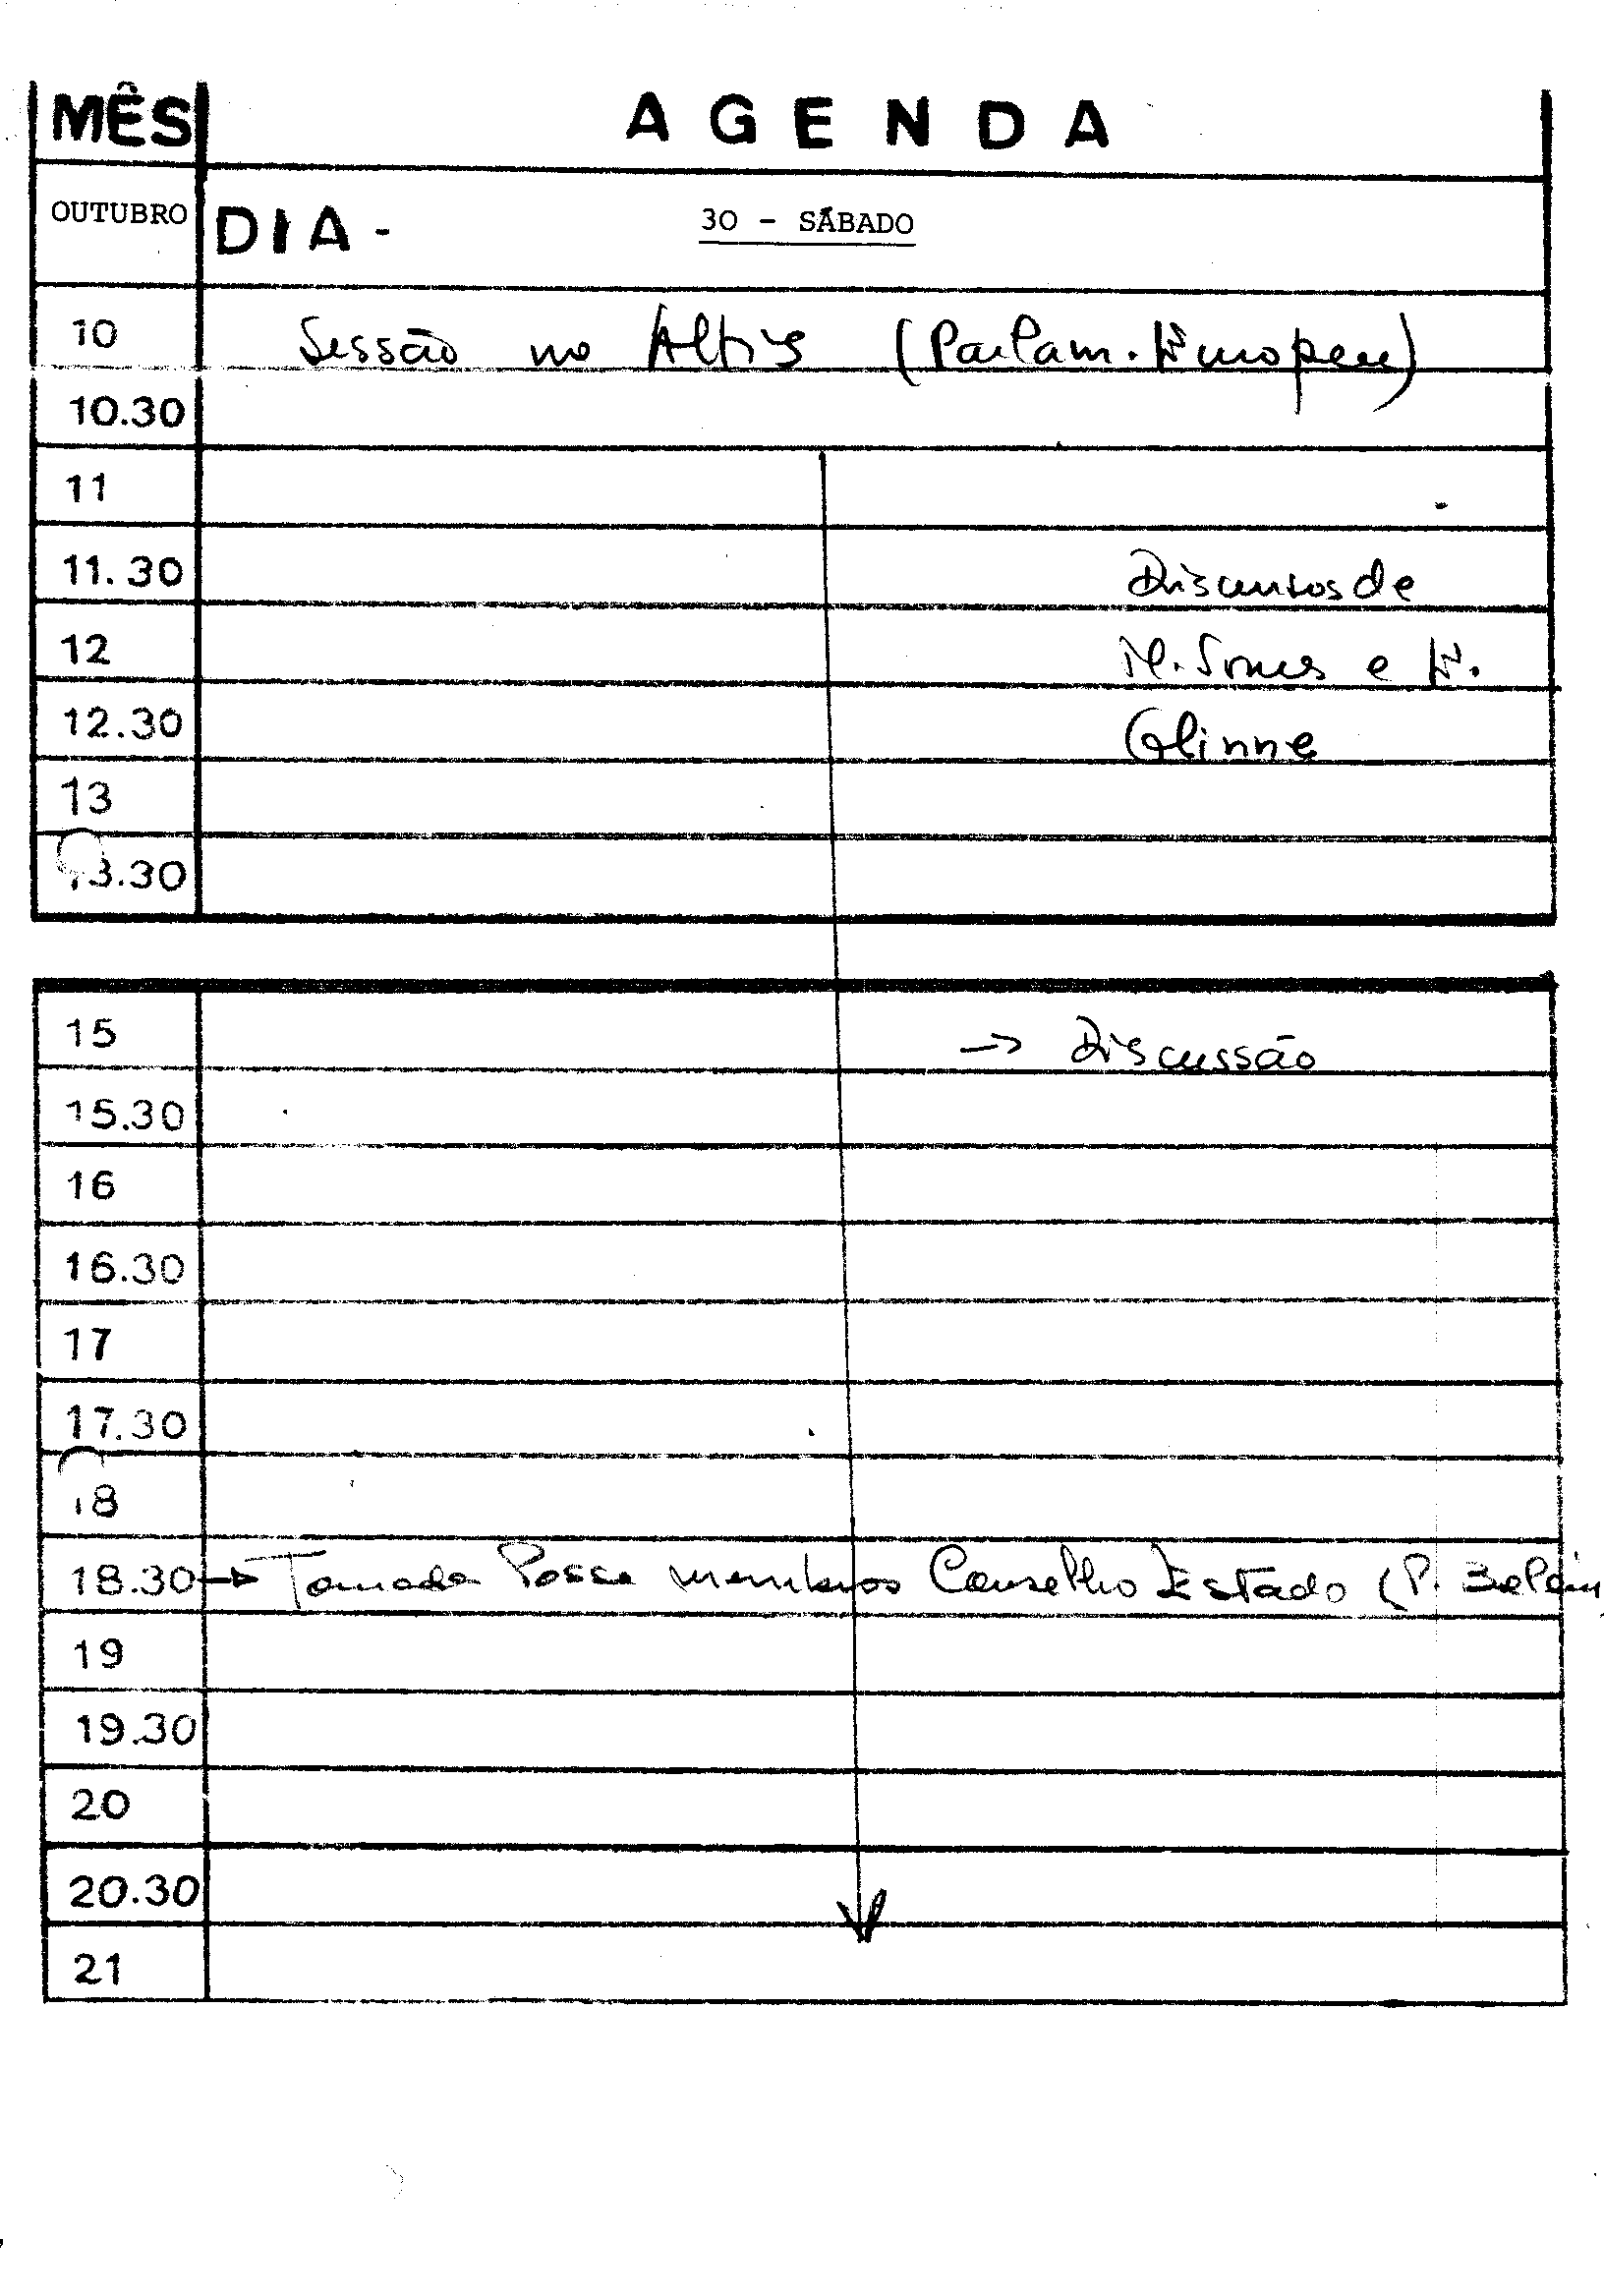 MÊS AGENDA
OUTUBRO DIA - 30 - SÁBADO
10 Sessão no Altis (Parlam. Europeu)
10.30
11
11.30 Discursos de
12 M. Soares e E.
12.30 Glinne
13
13.30
15 → Discussão
15.30
16
16.30
17
17.30
18
18.30 → Tomada Posse membros Conselho Estado (P. Belém
19
19.30
20
20.30
21